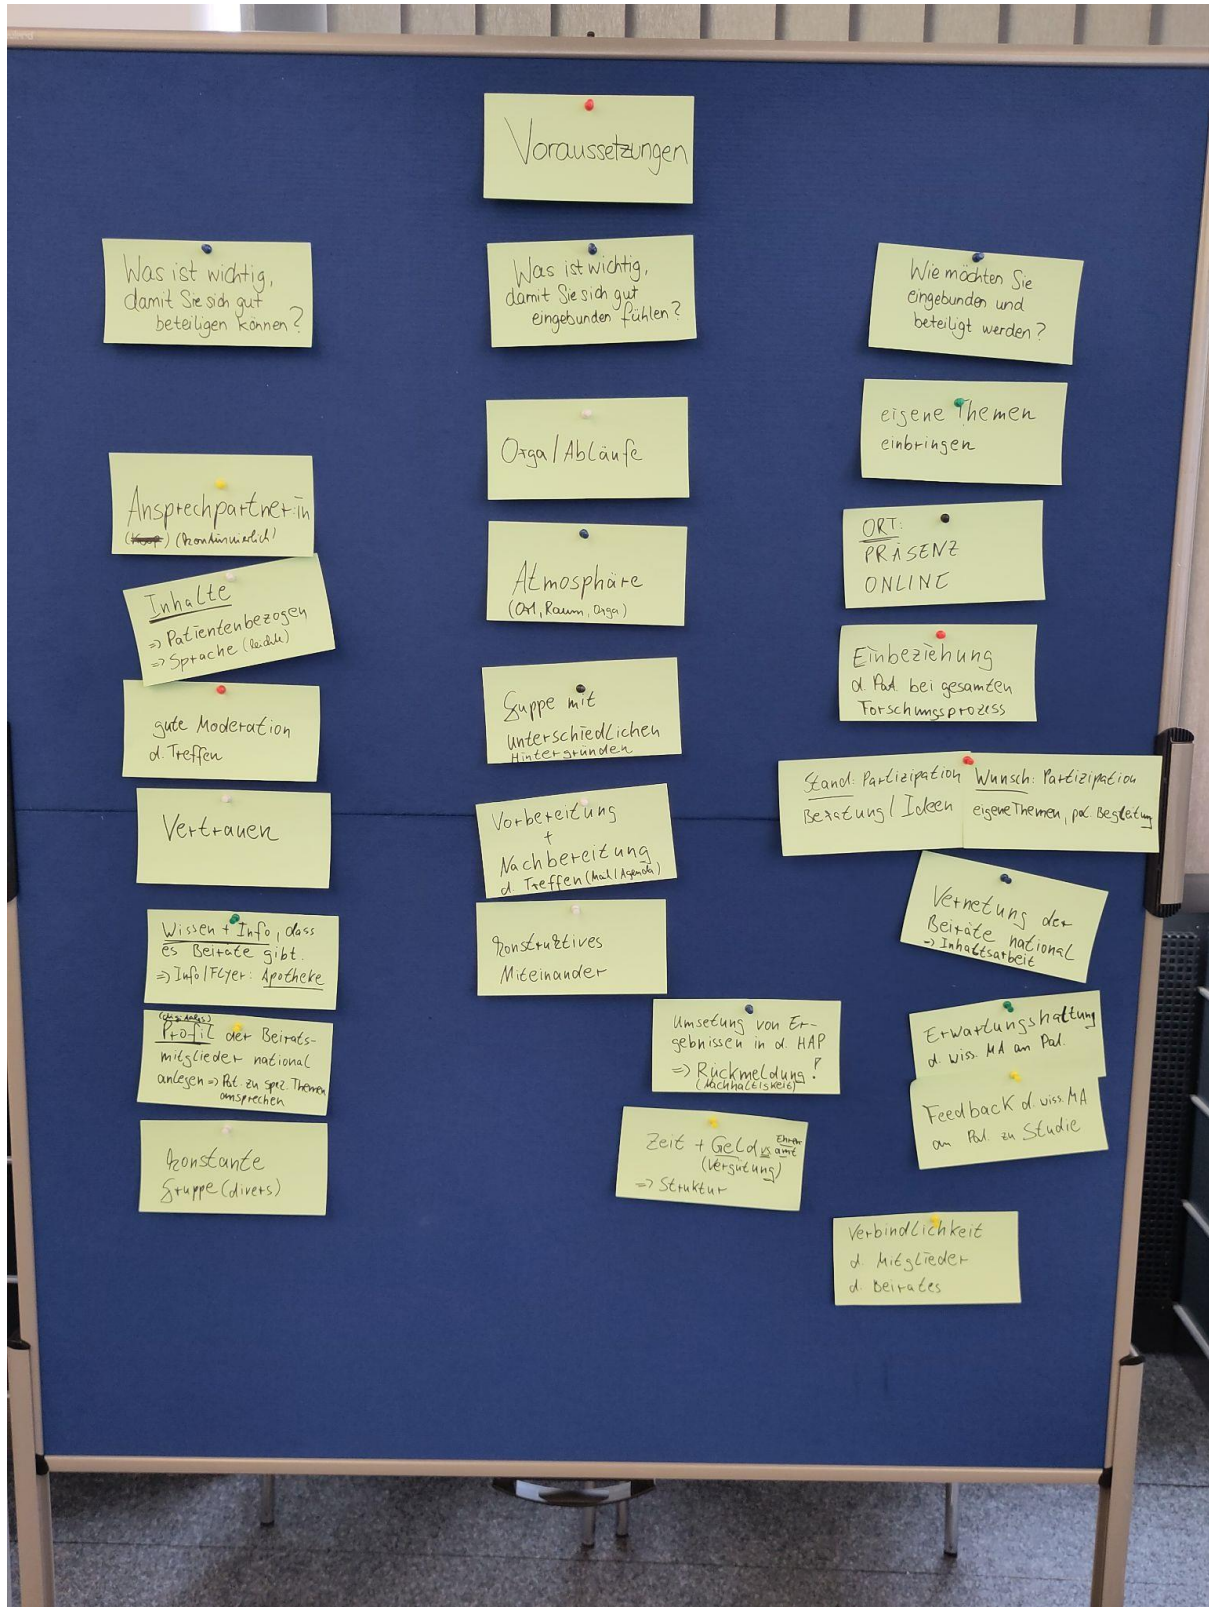 Voraussetzungen
Was ist wichtig,
damit Sie sich gut
beteiligen können?
Ansprechpartner:in
(kontinuierlich)
Inhalte
=> Patientenbezogen
=> Sprache (leichte)
gute Moderation
d. Treffen
Vertrauen
Wissen + Info, dass
es Beiräte gibt.
=> Info/Flyer: Apotheke
Profil der Beirats-
mitglieder national
anlegen => Pat. zu spez. Themen
ansprechen
Konstante
Gruppe (divers)
Was ist wichtig,
damit Sie sich gut
eingebunden fühlen?
Orga/Abläufe
Atmosphäre
(Ort, Raum, Orga)
Gruppe mit
unterschiedlichen
Hintergründen
Vorbereitung
+
Nachbereitung
d. Treffen (Mail/Agenda)
Konstruktives
Miteinander
Umsetung von Er-
gebnissen in d. HAP
=> Rückmeldung!
(Nachhaltigkeit)
Zeit + Geld vs Ehren
amt
(Vergütung)
=> Struktur
Wie möchten Sie
eingebunden und
beteiligt werden?
eigene Themen
einbringen
ORT:
PRÄSENZ
ONLINE
Einbeziehung
d. Pat. bei gesamten
Forschungsprozess
Stand: Partizipation
Beratung/Ideen
Wunsch: Partizipation
eigene Themen, pat. Begleitung
Vernetung der
Beiräte national
-> Inhaltsarbeit
Erwartungshaltung
d. wiss. MA an Pat.
Feedback d. wiss. MA
an Pat. zu Studie
Verbindlichkeit
d. Mitglieder
d. Beirates